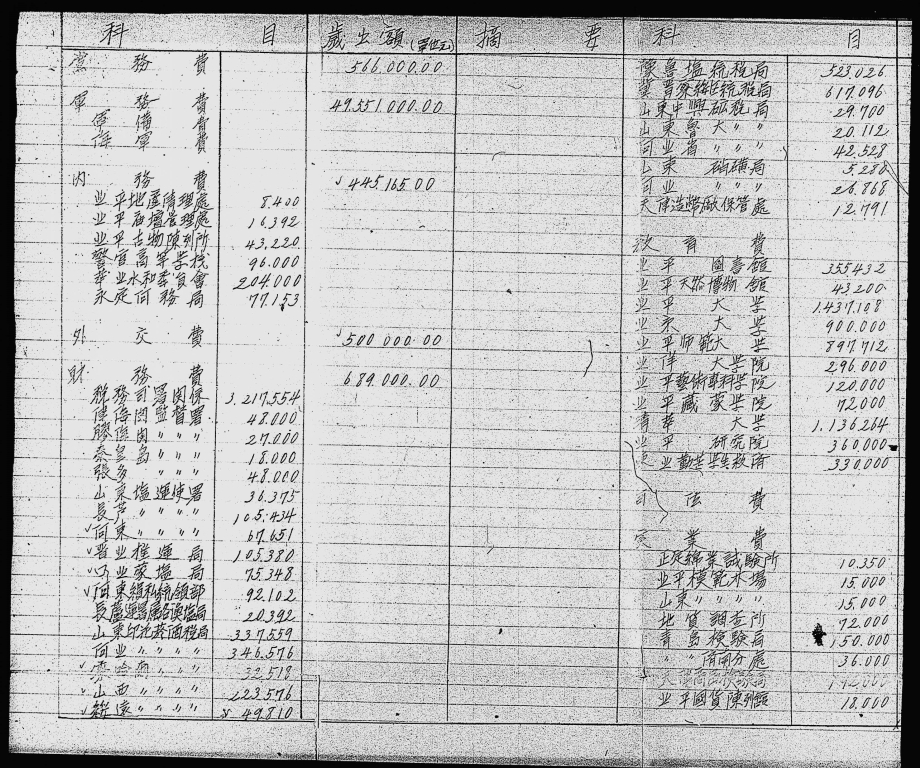 科 目 歳出額(單位元) 摘 要
党 務 費 566.000.00
軍 務 費 49.551.000.00
軍 備 費
海 軍 費
内 務 費 445.165.00
北平地産清理處 8.400
北平壇管理處 16.392
北平古物陳列所 43.220
警官高等学校 96.000
華北水利委員會 204.000
永定河務局 77.153
外 交 費 500 000.00
財 務 費 689.000.00
税務司署関係 3.217.554
津海関監督署 48.000
膠海関〃〃〃 27.000
秦皇島〃〃〃 18.000
張多〃〃〃 48.000
山東塩運使署 36.375
長芦〃〃〃〃 105.434
河東〃〃〃〃 67.651
晋北榷運局 105.380
口北蒙塩局 75.348
河東緝私統領部 92.102
長蘆 20.392
山東印花菸酒税局 337.559
河北〃〃〃〃 346.576
察哈爾〃〃〃 32.518
山西〃〃〃〃 223.576
綏遠〃〃〃〃 49.810
科 目
豫魯塩統税局 523.026
冀晋察綏統税局 617.096
山東中興砿税局 29.700
山東魯大〃〃 20.112
河北省〃〃 42.528
山東 硝磺局 5.286
河北 〃〃〃 26.868
天津造幣廠保管處 12.791
教 育 費
北平 圖書館 355432
北平天然博物館 43200
北平大学 1.437.108
北京大学 900.000
北平師範大学 897.712
北洋大学院 296.000
北平藝術専科学院 120.000
北平蔵蒙学院 72.000
清華大学 1.136.264
北平研究院 360.000
東北勤苦学生救済 330.000
司 法 費
実 業 費
正定綿業試験所 10.350
北平模範林場 15.000
山東〃〃〃〃 15.000
地質調査所 72.000
青島検験局 150.000
〃〃済南分處 36.000
北平國貨陳列館 18.000